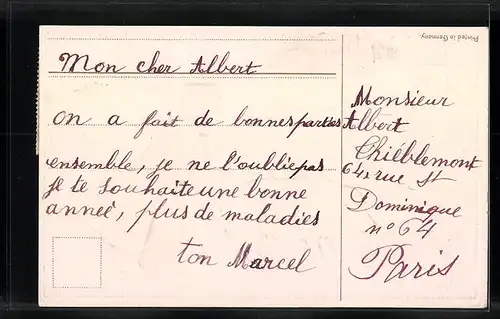 Mon cher Albert
on a fait de bonnes parties
ensemble, je ne l'oublie pas
je te souhaite une bonne
anneé, plus de maladies
ton Marcel
Printed in Germany
Monsieur
Albert
Chiéblemont
64, rue St
Dominique
n° 64
Paris